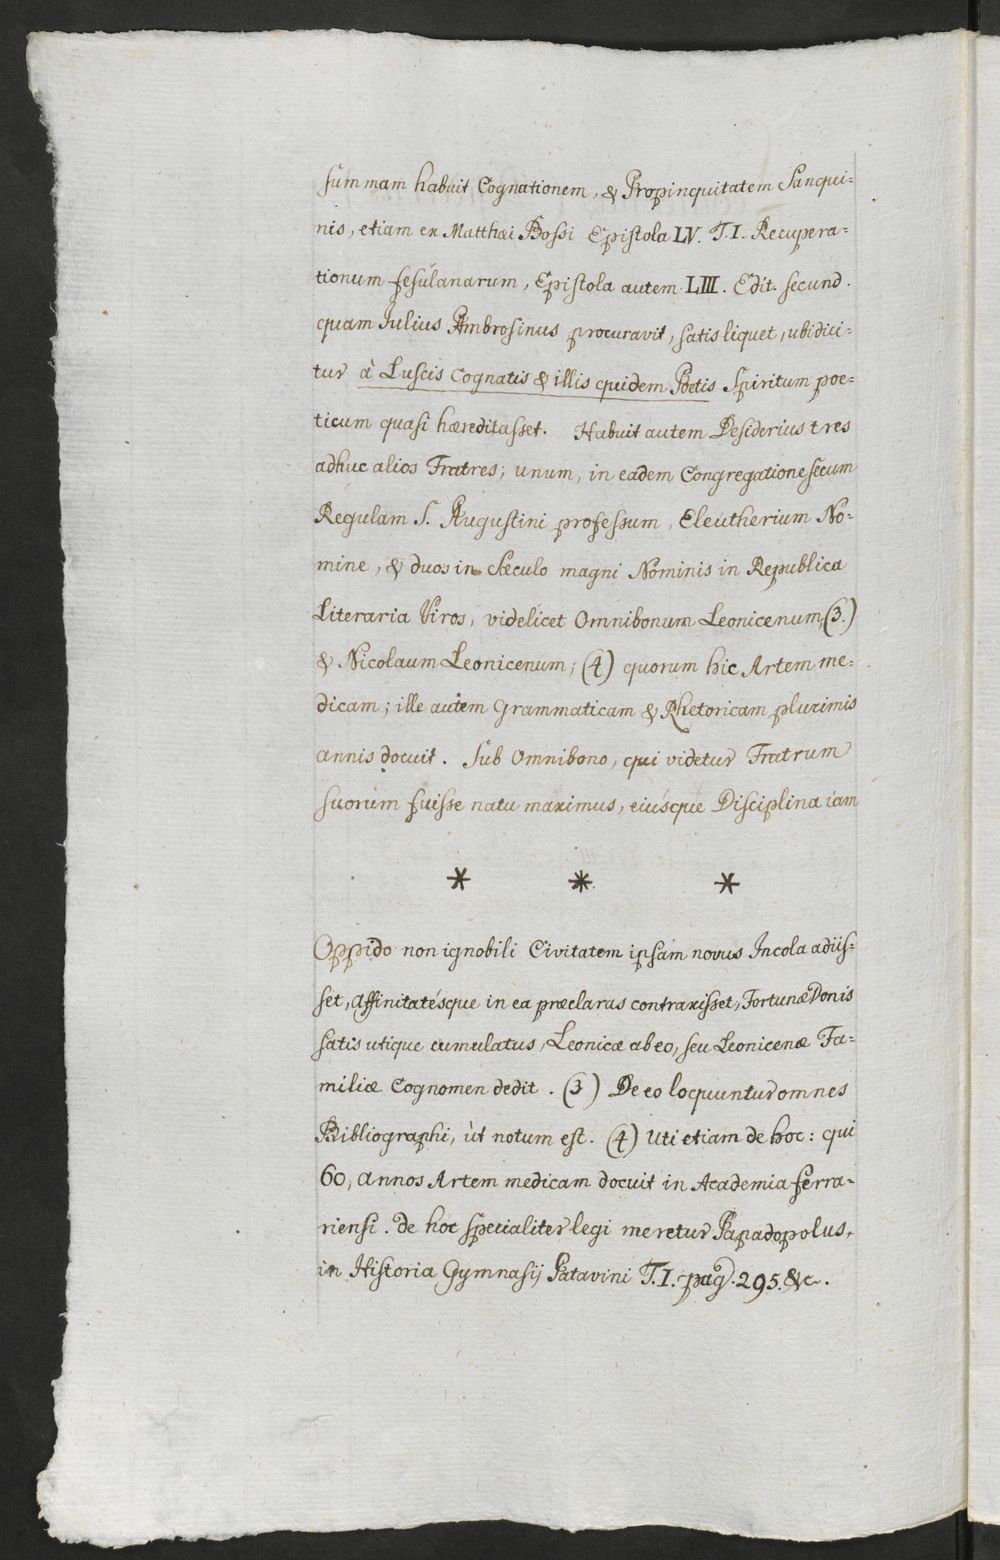 summam habuit Cognationem, & Propinquitatem Sanqui=
nis, etiam ex Matthæi Bossi Epistola LV. T.I. Recupera=
tionum fesulanarum, Epistola autem LIII. Edit. secund.
quam Julius Ambrosinus procuravit, satis liquet, ubi dici=
tur à Luscis Cognatis & illis quidem Poetis Spiritum poe=
ticum quasi hæreditasset. Habuit autem Desiderius tres
adhuc alios Fratres; unum, in eadem Congregatione secum
Regulam S. Augustini professum, Eleutherium No=
mine, & duos in Sæculo magni Nominis in Republica
Literaria Viros, videlicet Omnibonum Leonicenum, (3.)
& Nicolaum Leonicenum; (4) quorum hic Artem me=
dicam; ille autem Grammaticam & Rhetoricam plurimis
annis docuit. Sub Omnibono, qui videtur Fratrum
suorum fuisse natu maximus, eiúsque Disciplina iam
* * *
Oppido non ignobili Civitatem ipsam novus Incola adiis=
set, Affinitatésque in ea præclaras contraxisset, Fortunæ Donis
satis utique cumulatus, Leonicæ ab eo, seu Leonicenæ Fa=
miliæ Cognomen dedit. (3) De eo loquuntur omnes
Bibliographi, ùt notum est. (4) Uti etiam de hoc: qui
60, annos Artem medicam docuit in Academia ferra=
riensi. de hoc specialiter legi meretur Papadopolus,
in Historia Gymnasij Patavini T.I. pag. 295. &c.